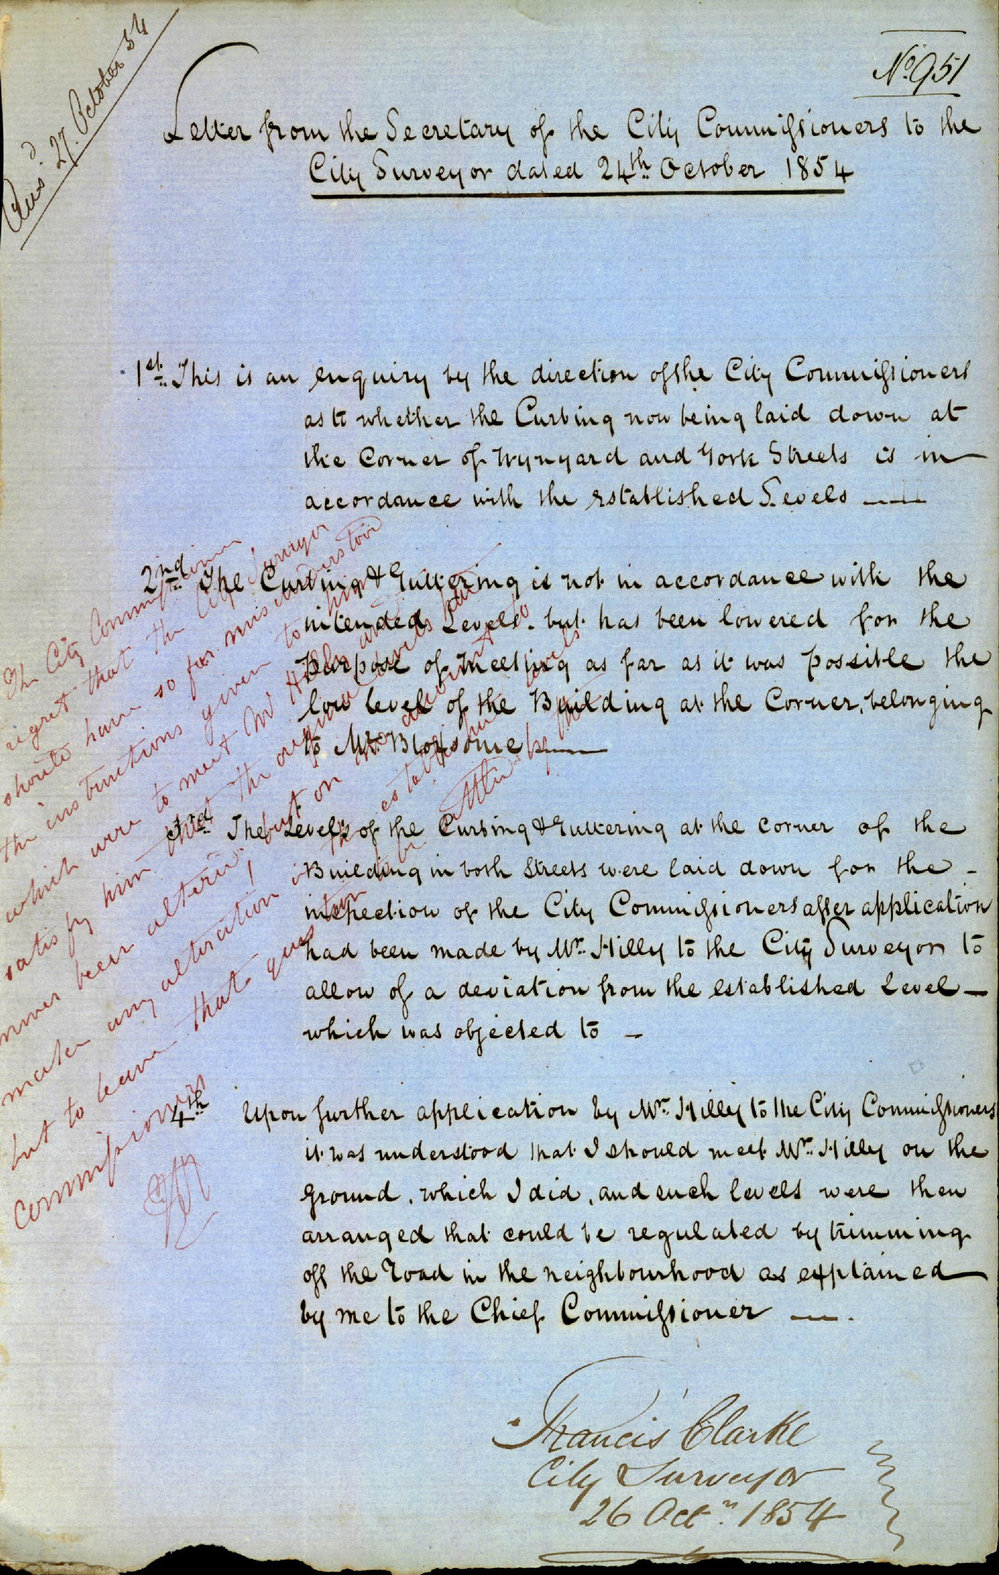 No. 951
Ansd. 27. October 54
Letter from the Secretary of the City Commissioners to the
City Surveyor dated 24th. October 1854
1st. This is an enquiry by the direction of the City Commissioners
as to whether the Curbing now being laid down at
the Corner of Wynyard and York Streets is in
accordance with the established Levels
2nd. The Curbing & Guttering is not in accordance with the
intended Levels. but has been lowered for the
purpose of meeting as far as it was possible the
low level of the Building at the Corner, belonging
to Mr. Bloxsome
3rd. The Levels of the Curbing & Guttering at the corner of the
Building in both Streets were laid down for the
inspection of the City Commissioners after application
had been made by Mr. Hilly to the City Surveyor to
allow of a deviation from the established Level
which was objected to
4th. Upon further application by Mr. Hilly to the City Commissioners
it was understood that I should meet Mr. Hilly on the
ground, which I did, and such levels were then
arranged that could be regulated by trimming
off the Road in the neighbourhood as explained
by me to the Chief Commissioner
Francis Clarke
City Surveyor
26 Octr. 1854
The City Commissioners
regret that the City Surveyor
should have so far misunderstood
the instructions given to him
which were to meet Mr Hilly and
satisfy him that the original levels had
never been altered, but on no account to
make any alteration in the established levels
but to leave that question to be settled by the
Commissioners